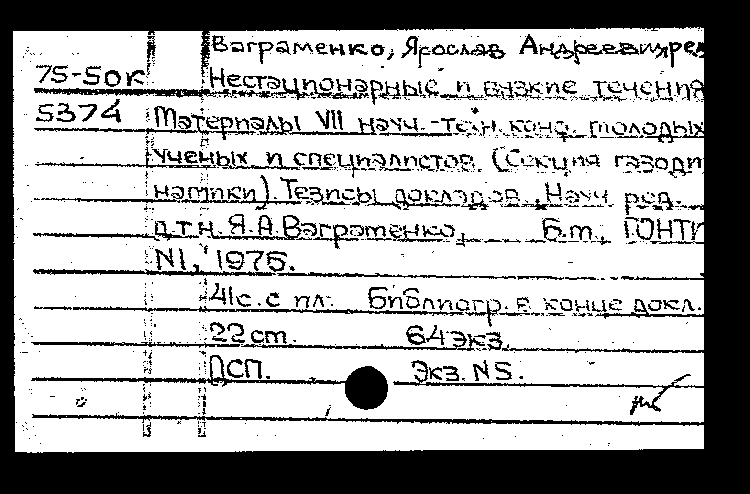 Ваграменко, Ярослав Андреевич, ред
75-50к Нестационарные и вязкие течения
5374 Материалы VII науч.-техн. конф. молодых
ученых и специалистов (Секция газоди
намики). Тезисы докладов. Науч ред.
д.т.н. Я.А.Ваграменко, Б.м., ГОНТИ
N1, 1975.
41с. с ил. Библиогр. в конце докл.
22 см. 64 экз.
ДСП. Экз. N5.